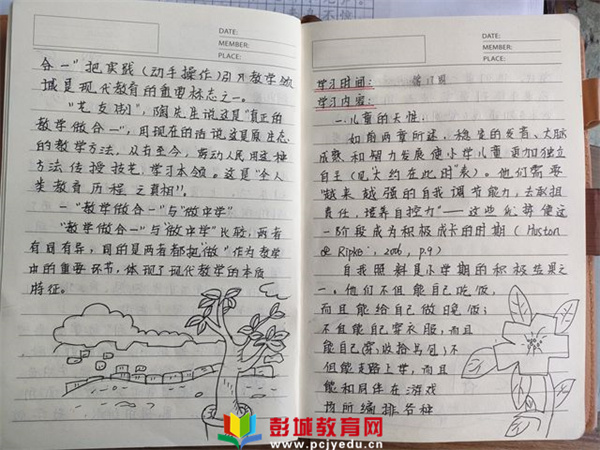 DATE:
MEMBER:
PLACE:
合一"把实践(动手操作)引入教学领
域是现代教育的重要标志之一。
"艺友制",陶先生说这是"真正的
教学做合一",用现在的话说这是原生态
的教学方法,从古至今,劳动人民用这种
方法传授技艺,学习本领。这是"全人
类教育历程之真相"。
一"教学做合一"与"做中学"
"教学做合一"与"做中学"比较,两者
有同有异,同的是两者都把"做"作为教学
中的重要环节,体现了现代教学的本质
特征。
DATE:
MEMBER:
PLACE:
学习时间:
学习内容:
一、儿童的天性:
如前两章所述,稳定的发育、大脑
成熟和智力发展使小学儿童更加独立
自主(见大约在此时"表)。他们需要
"越来越强的自我调节能力,去承担
责任,培养自控力"——这些优势使这
一阶段成为积极成长的时期(Huston
& Ripke, 2006, p.9)
自我照料是小学期的积极结果之
一。他们不但能自己吃饭,
而且能给自己做晚饭;
不但能自己穿衣服,而且
能自己(穿)收拾书包)不
但能走路上学,而且
能和同伴在游戏
场所编排各种
彭城教育网
www.pcjyedu.cn